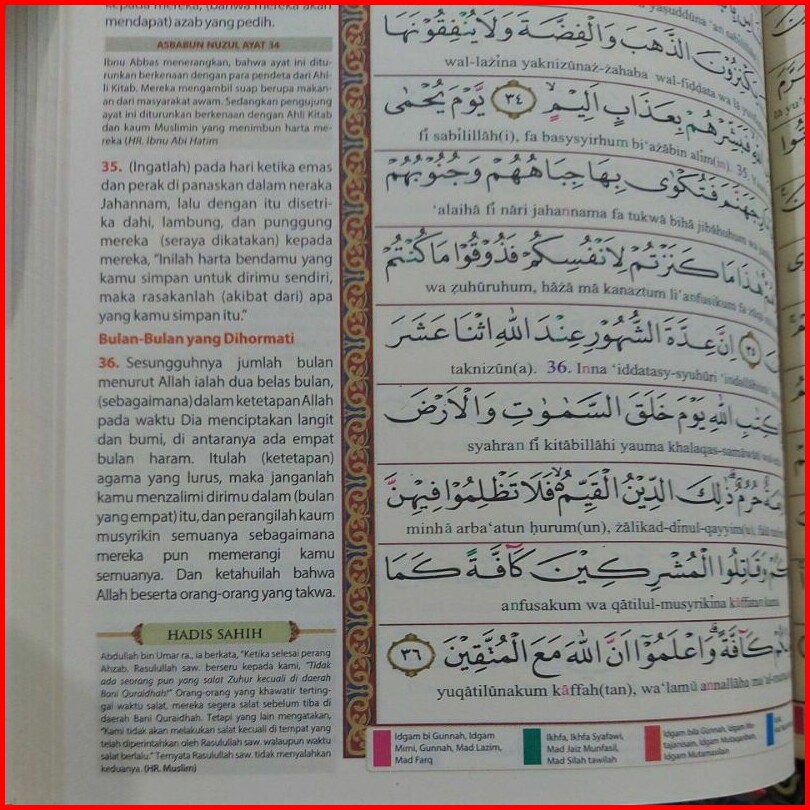 mendapat) azab yang pedih.
ASBABUN NUZUL AYAT 34
Ibnu Abbas menerangkan, bahwa ayat ini ditu-
runkan berkenaan dengan para pendeta dari Ahl-
li Kitab. Mereka mengambil suap berupa makan-
an dari masyarakat awam. Sedangkan pengujung
ayat ini diturunkan berkenaan dengan Ahli Kitab
dan kaum Muslimin yang menimbun harta me-
reka (HR. Ibnu Abi Hatim
35. (Ingatlah) pada hari ketika emas
dan perak di panaskan dalam neraka
Jahannam, lalu dengan itu disetri-
ka dahi, lambung, dan punggung
mereka (seraya dikatakan) kepada
mereka, "Inilah harta bendamu yang
kamu simpan untuk dirimu sendiri,
maka rasakanlah (akibat dari) apa
yang kamu simpan itu."
Bulan-Bulan yang Dihormati
36. Sesungguhnya jumlah bulan
menurut Allah ialah dua belas bulan,
(sebagaimana) dalam ketetapan Allah
pada waktu Dia menciptakan langit
dan bumi, di antaranya ada empat
bulan haram. Itulah (ketetapan)
agama yang lurus, maka janganlah
kamu menzalimi dirimu dalam (bulan
yang empat) itu, dan perangilah kaum
musyrikin semuanya sebagaimana
mereka pun memerangi kamu
semuanya. Dan ketahuilah bahwa
Allah beserta orang-orang yang takwa.
HADIS SAHIH
Abdullah bin Umar ra., ia berkata, "Ketika selesai perang
Ahzab, Rasulullah saw. berseru kepada kami, "Tidak
ada seorang pun yang salat Zuhur kecuali di daerah
Bani Quraidhah!" Orang-orang yang khawatir terting-
gal waktu salat, mereka segera salat sebelum tiba di
daerah Bani Quraidhah. Tetapi yang lain mengatakan,
"Kami tidak akan melakukan salat kecuali di tempat yang
telah diperintahkan oleh Rasulullah saw. walaupun waktu
salat berlalu." Ternyata Rasulullah saw. tidak menyalahkan
keduanya. (HR. Muslim)
يَكْنِزُوْنَ الذَّهَبَ وَالْفِضَّةَ وَلَا يُنْفِقُوْنَهَا
wal-lażīna yaknizūnaż-żahaba wal-fiḍḍata wa lā
فَبَشِّرْهُمْ بِعَذَابٍ اَلِيْمٍۙ ٣٤ يَّوْمَ يُحْمٰى
fī sabīlillāh(i), fa basysyirhum bi'ażābin alīm(in). 35.
جَهَنَّمَ فَتُكْوٰى بِهَا جِبَاهُهُمْ وَجُنُوْبُهُمْ
'alaihā fī nāri jahannama fa tukwā bihā jibāhuhum wa
هٰذَا مَا كَنَزْتُمْ لِاَنْفُسِكُمْ فَذُوْقُوْا مَا كُنْتُمْ
wa ẓuhūruhum, hāżā mā kanaztum li'anfusikum fa
٣٥ اِنَّ عِدَّةَ الشُّهُوْرِ عِنْدَ اللّٰهِ اثْنَا عَشَرَ
taknizūn(a). 36. Inna 'iddatasy-syuhūri 'indallāhiṡnā
كِتٰبِ اللّٰهِ يَوْمَ خَلَقَ السَّمٰوٰتِ وَالْاَرْضَ
syahran fī kitābillāhi yauma khalaqas-samāwāti
حُرُمٌۗ ذٰلِكَ الدِّيْنُ الْقَيِّمُ ەۙ فَلَا تَظْلِمُوْا فِيْهِنَّ
minhā arba'atun ḥurum(un), żālikad-dīnul-qayyim(u),
وَقَاتِلُوا الْمُشْرِكِيْنَ كَاۤفَّةً كَمَا
anfusakum wa qātilul-musyrikīna kāffatan kamā
كَاۤفَّةًۗ وَاعْلَمُوْٓا اَنَّ اللّٰهَ مَعَ الْمُتَّقِيْنَ ٣٦
yuqātilūnakum kāffah(tan), wa'lamū annallāha ma'al-
Idgam bi Gunnah, Idgam
Mimi, Gunnah, Mad Lazim,
Mad Farq
Ikhfa, Ikhfa Syafawi,
Mad Jaiz Munfasil,
Mad Silah tawilah
Idgam bila Gunnah, Idgam Mu-
tajanisain, Idgam Mutaqaribain,
Idgam Mutamasilain